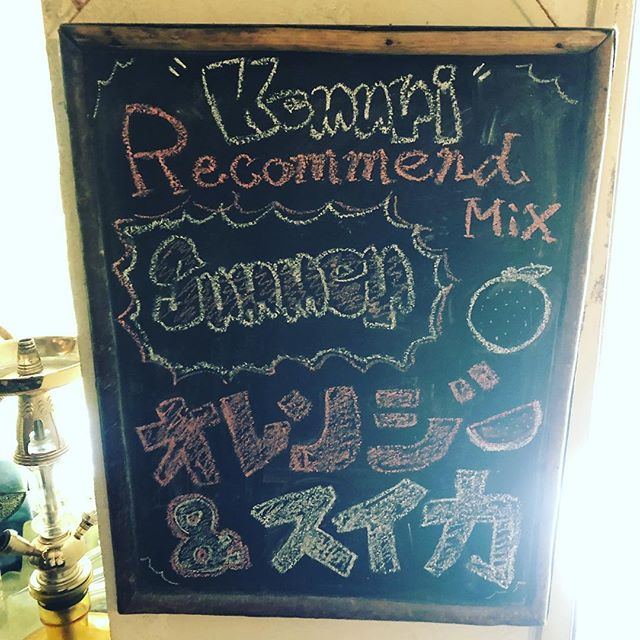 "Kemuri"
Recommend
Mix
Summer
オレンジ
&スイカ